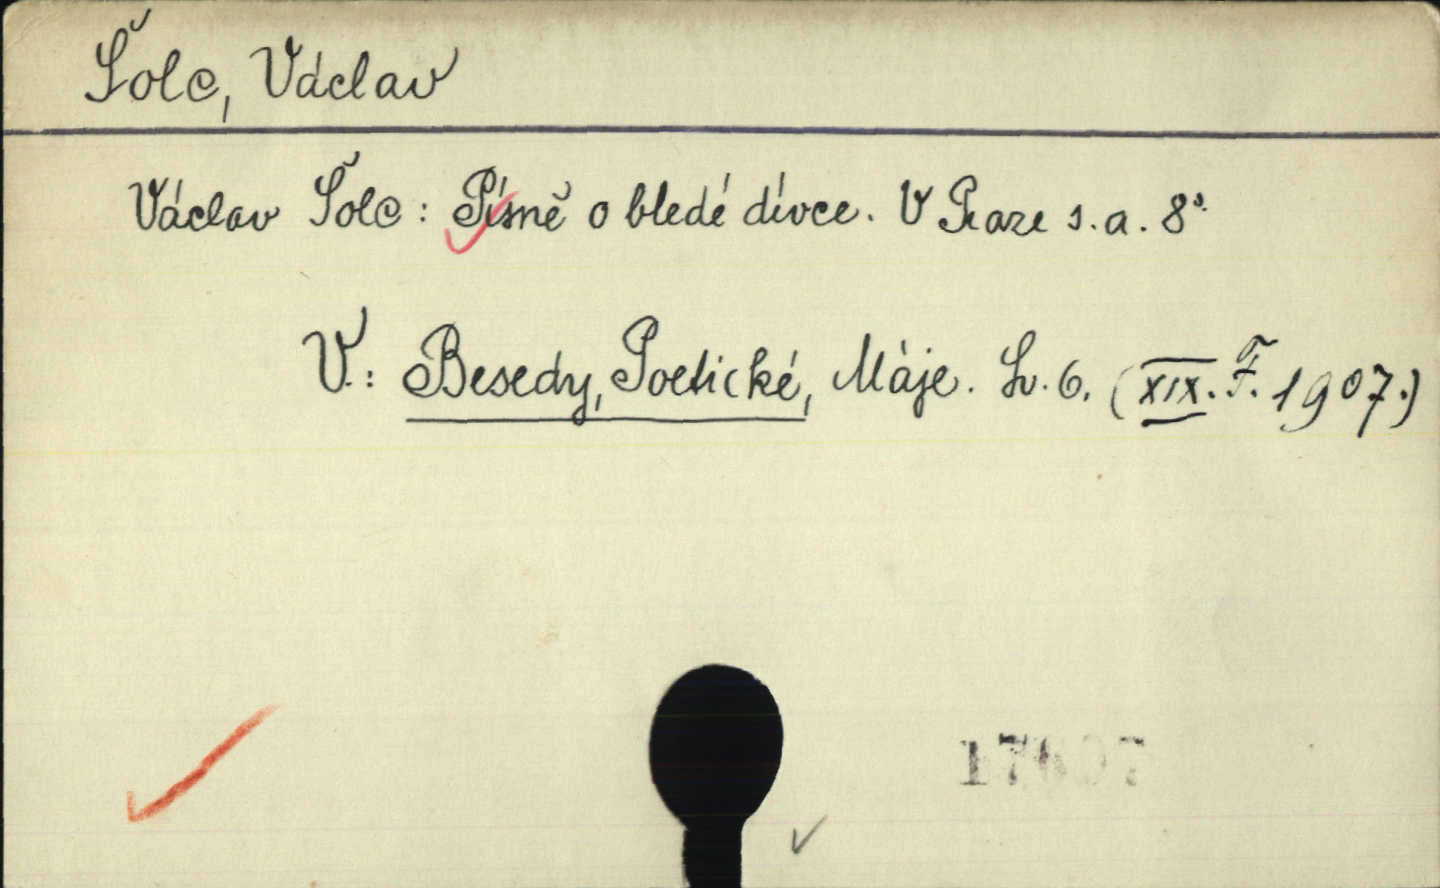 Šolc, Václav
Václav Šolc: Písně o bledé dívce. V Praze s.a. 8°.
V.: Besedy, Poetické, Máje. Sv. 6. (XIX. F. 1907.)